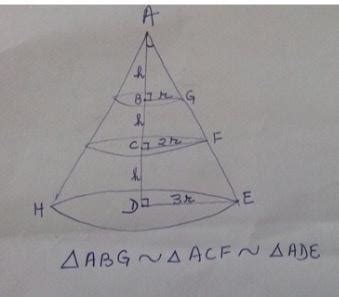 A
h
B r G
h
C 2r F
h
H D 3r E
△ABG ~ △ACF ~ △ADE